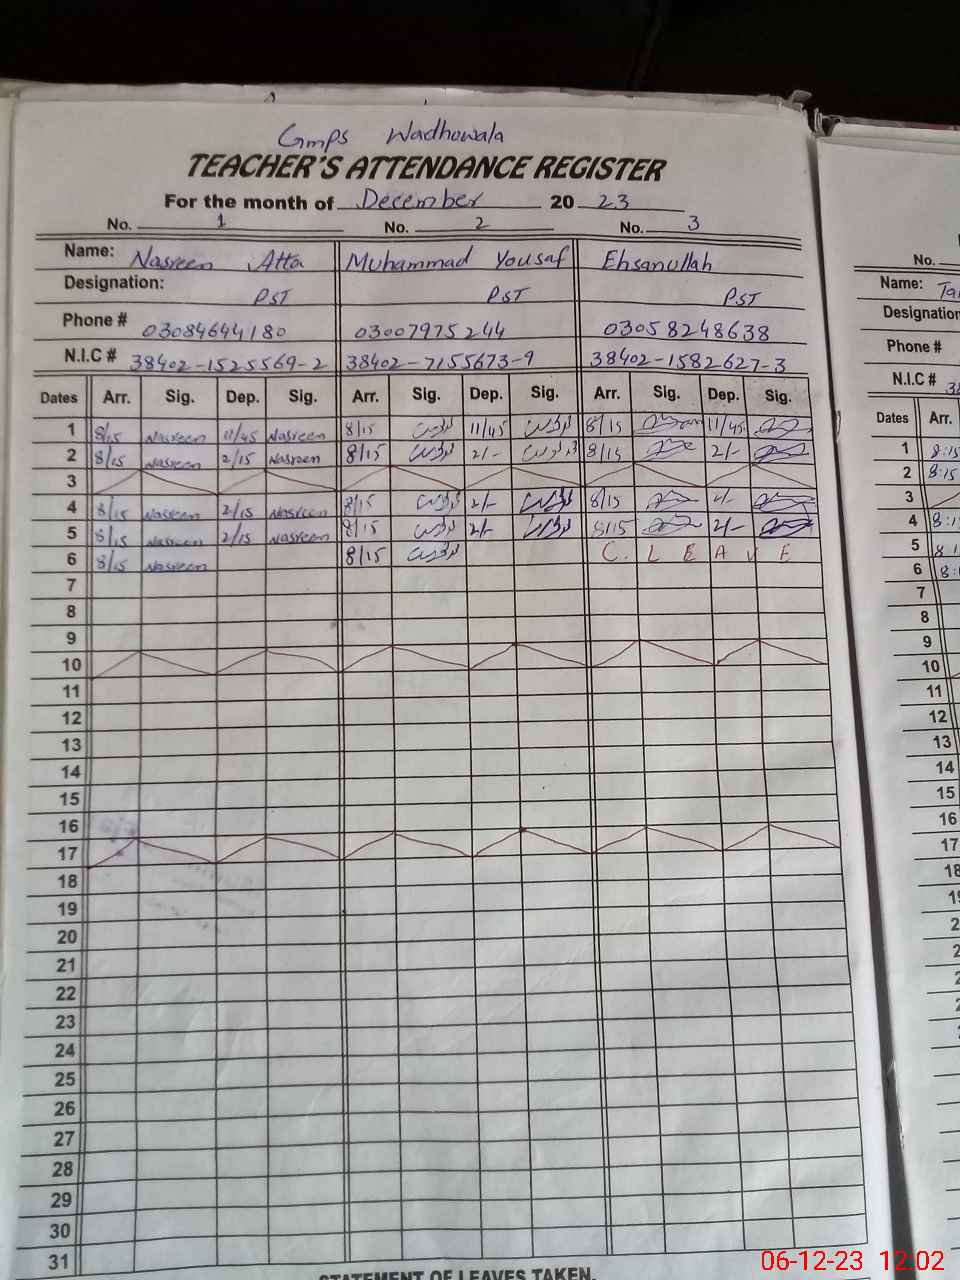 Gmps Wadhowala
TEACHER'S ATTENDANCE REGISTER
For the month of December 20 23
No. 1 No. 2 No. 3
Name: Nasreen Atta Muhammad Yousaf Ehsanullah
Designation: PST PST PST
Phone # 03084644180 03007975244 03058248638
N.I.C # 38402-1525569-2 38402-7155673-9 38402-1582627-3
Dates Arr. Sig. Dep. Sig. Arr. Sig. Dep. Sig. Arr. Sig. Dep. Sig.
1 8/15 Nasreen 11/45 Nasreen 8/15 11/45 8/15 11/45
2 8/15 Nasreen 2/15 Nasreen 8/15 2/- 8/15 2/-
3
4 8/15 Nasreen 2/15 Nasreen 8/15 2/- 8/15 2/-
5 8/15 Nasreen 2/15 Nasreen 8/15 2/- 8/15 2/-
6 8/15 Nasreen 8/15 C. LEAVE
7
8
9
10
11
12
13
14
15
16
17
18
19
20
21
22
23
24
25
26
27
28
29
30
31
STATEMENT OF LEAVES TAKEN.
No.
Name:
Designation
Phone #
N.I.C #
Dates Arr.
1 8:15
2 8:15
3
4
5
6
7
8
9
10
11
12
13
14
15
16
17
18
06-12-23 12.02